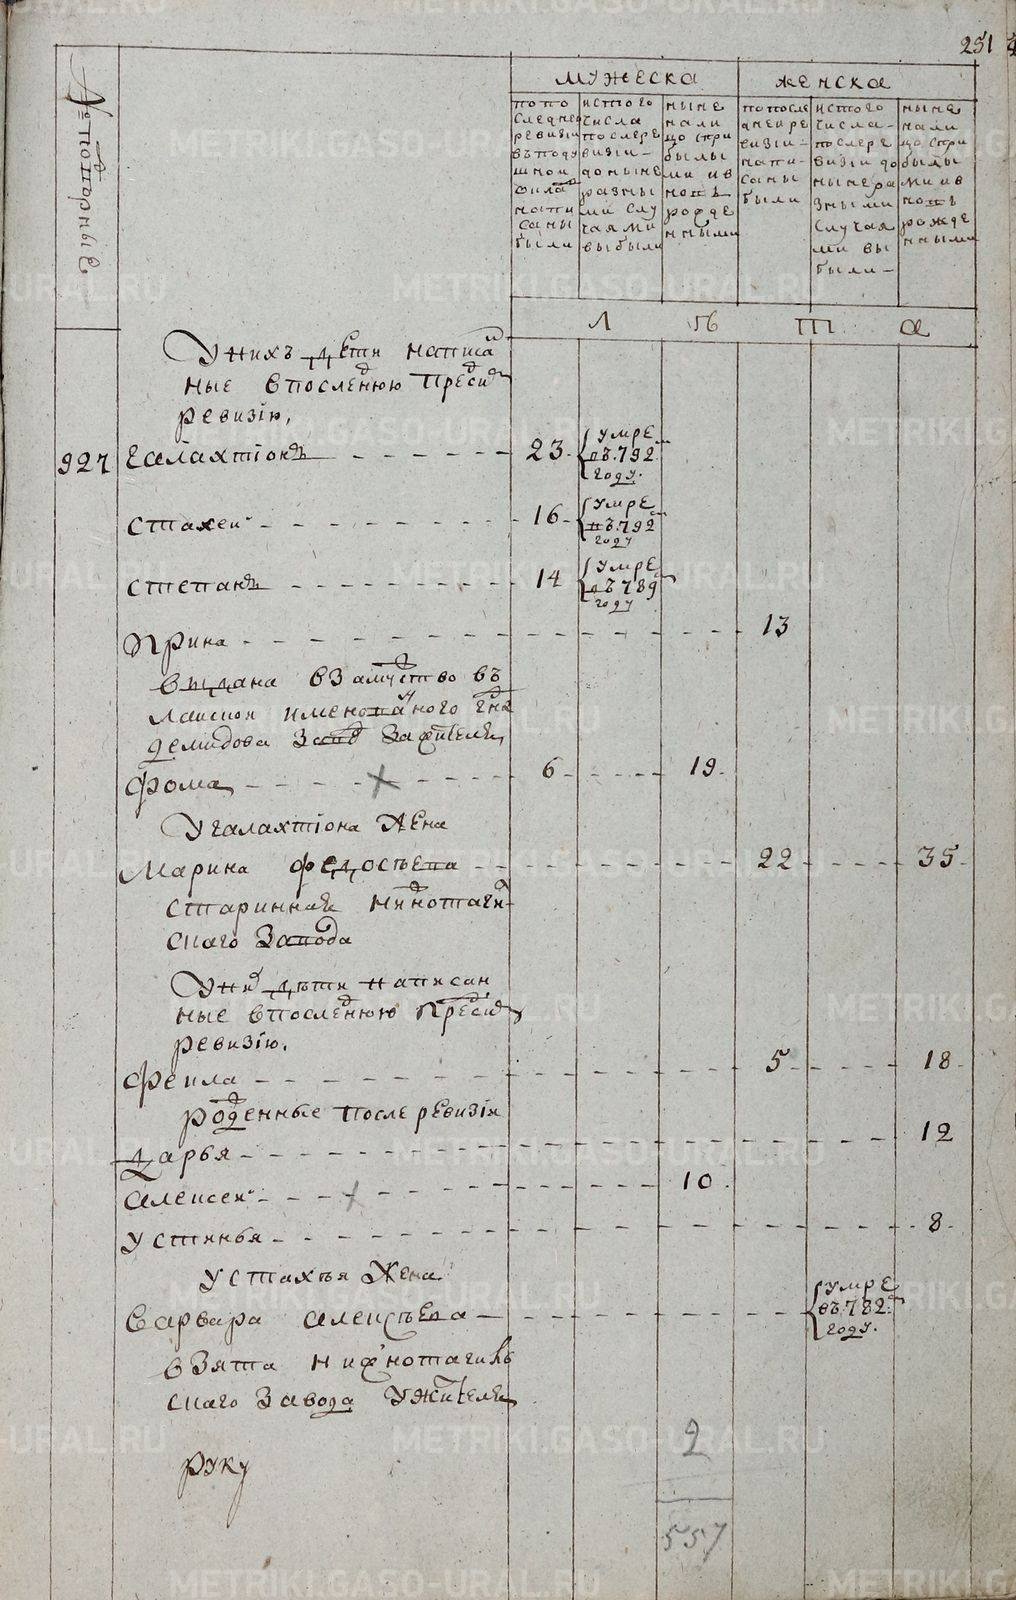 251
№ подворные
мужеска
женска
по последней ревизии в подушной оклад написаны были
ис того числа после ревизии до ныне разными случаями выбыли
ныне на лицо с прибылыми и вновь рожденными
по последней ревизии написаны были
ис того числа после ревизии до ныне разными случаями выбыли
ныне на лицо с прибылыми и вновь рожденными
л ѣ т а
У нихъ дети написан
ные в последнюю пред сим
ревизiю.
927 Галахтiонъ 23 умре въ 792 году.
Стахеи 16 умре въ 792 году
Степанъ 14 умре въ 789 году
Ирина 13
выдана в замужство въ
Демидова завод за жителя
Фома 6 19
У Галахтiона жена
Марина Федосѣева 22 35
старинная нижнотагил
скаго завода
У них дѣти написан
ные в последнюю пред сим
ревизiю.
Фекла 5 18
рожденные после ревизiи
Дарья 12
Алексеи 10
Устинья 8
У Стахѣя жена
Варвара Алексѣева умре въ 782 году.
взята нижнотагиль
скаго завода у жителя
руку
2
557
METRIKI.GASO-URAL.RU